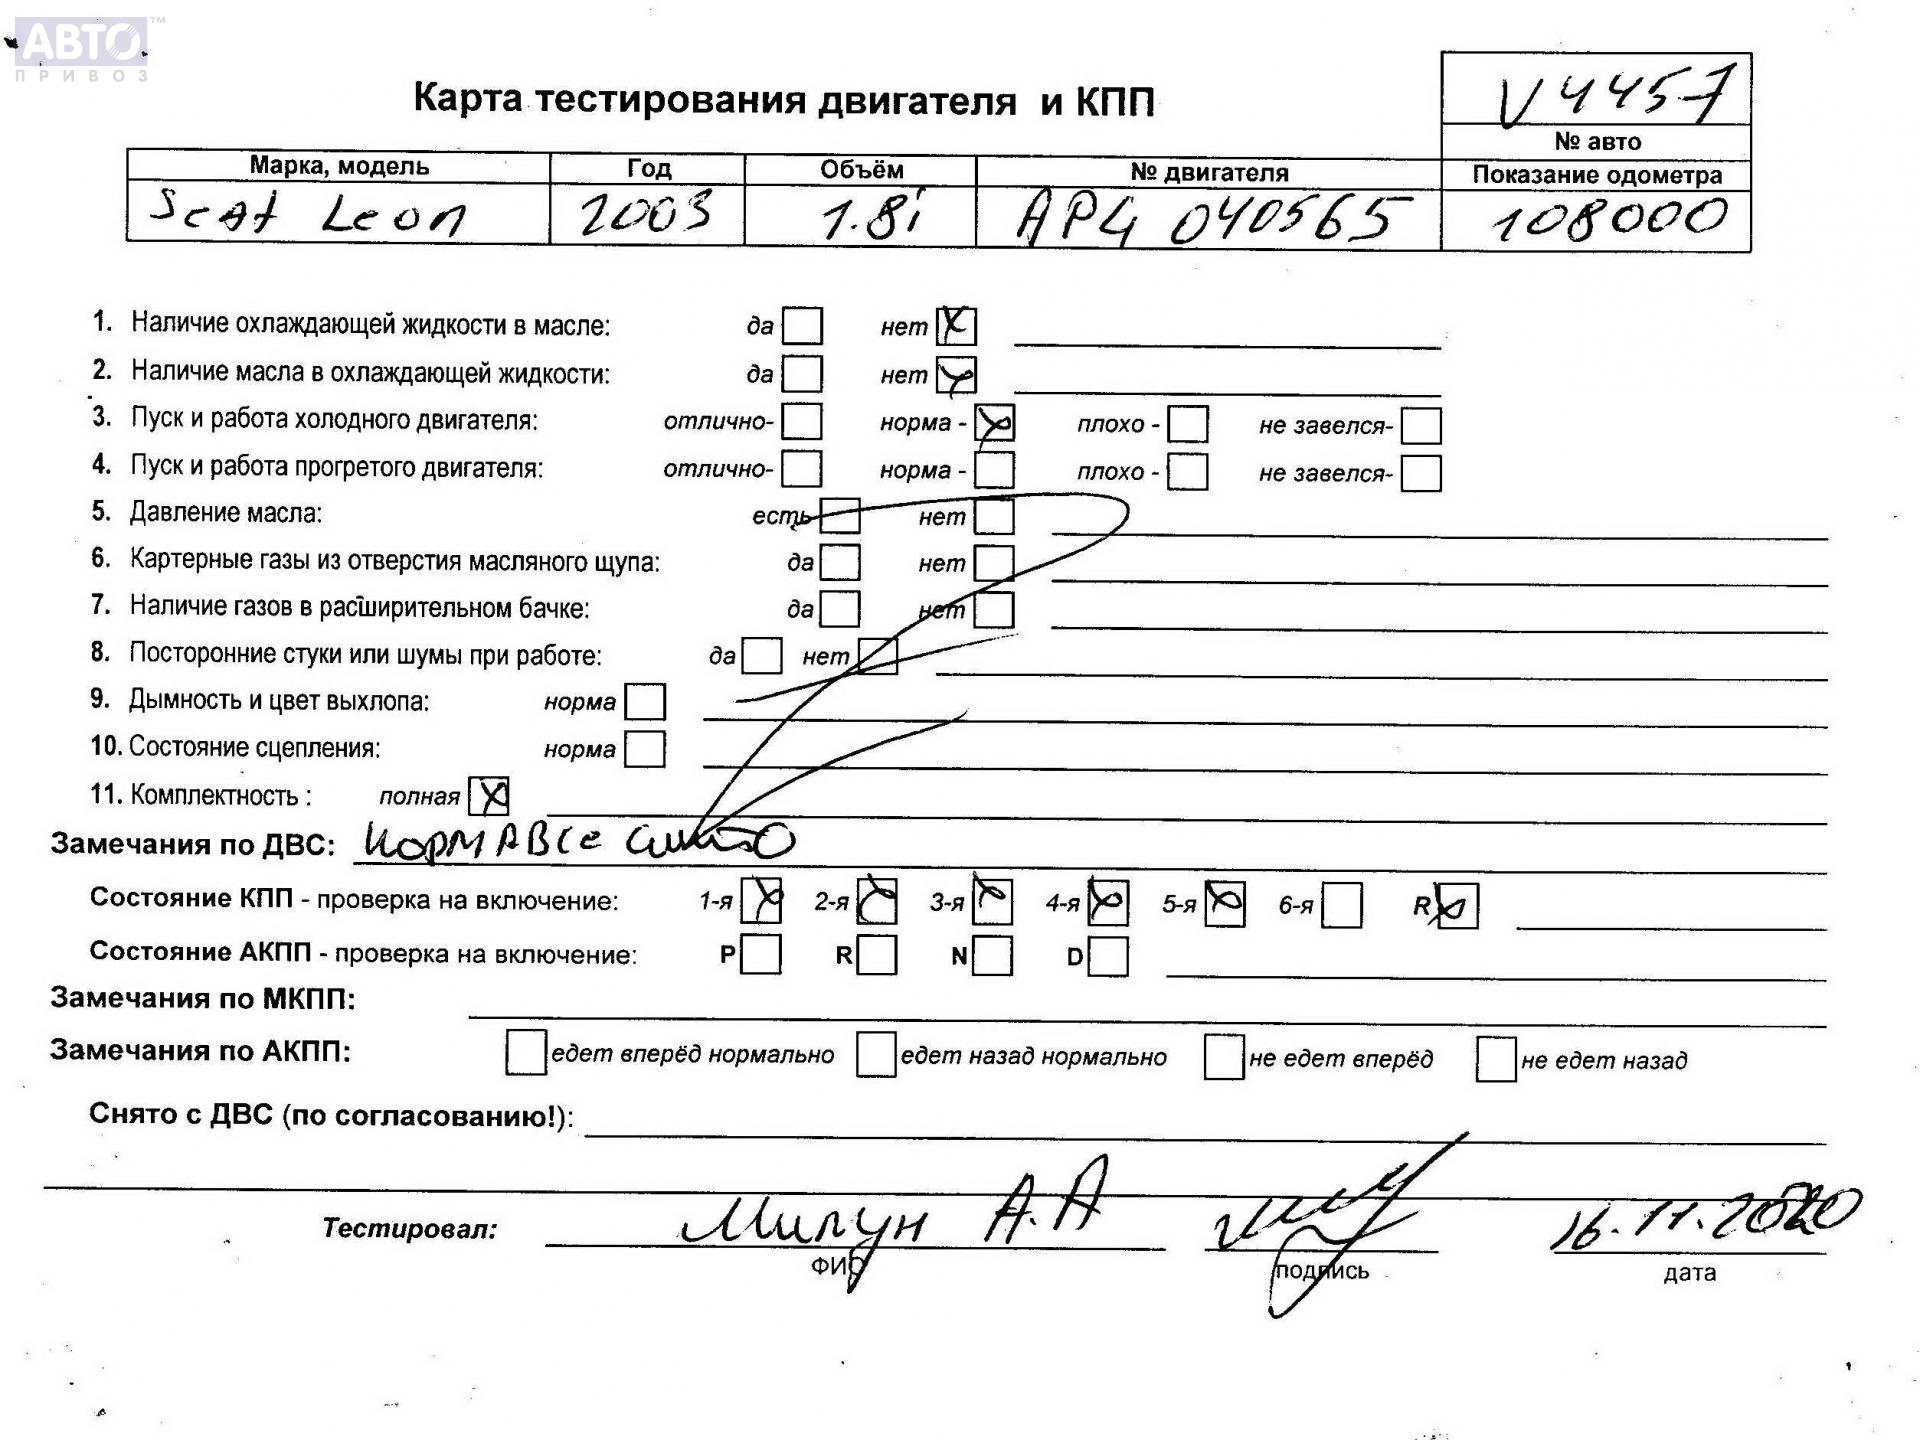 АВТО™
ПРИВОЗ
V4457
Карта тестирования двигателя и КПП
№ авто
Марка, модель Год Объём № двигателя Показание одометра
Seat Leon 2003 1.8i АРЦ 040565 108000
1. Наличие охлаждающей жидкости в масле: да нет
2. Наличие масла в охлаждающей жидкости: да нет
3. Пуск и работа холодного двигателя: отлично- норма - плохо - не завелся-
4. Пуск и работа прогретого двигателя: отлично- норма - плохо - не завелся-
5. Давление масла: есть нет
6. Картерные газы из отверстия масляного щупа: да нет
7. Наличие газов в расширительном бачке: да нет
8. Посторонние стуки или шумы при работе: да нет
9. Дымность и цвет выхлопа: норма
10. Состояние сцепления: норма
11. Комплектность : полная
Замечания по ДВС: норм Авсе
Состояние КПП - проверка на включение: 1-я 2-я 3-я 4-я 5-я 6-я R
Состояние АКПП - проверка на включение: P R N D
Замечания по МКПП:
Замечания по АКПП: едет вперёд нормально едет назад нормально не едет вперёд не едет назад
Снято с ДВС (по согласованию!):
Тестировал: Милун А.А 16.11.2020
ФИО подпись дата